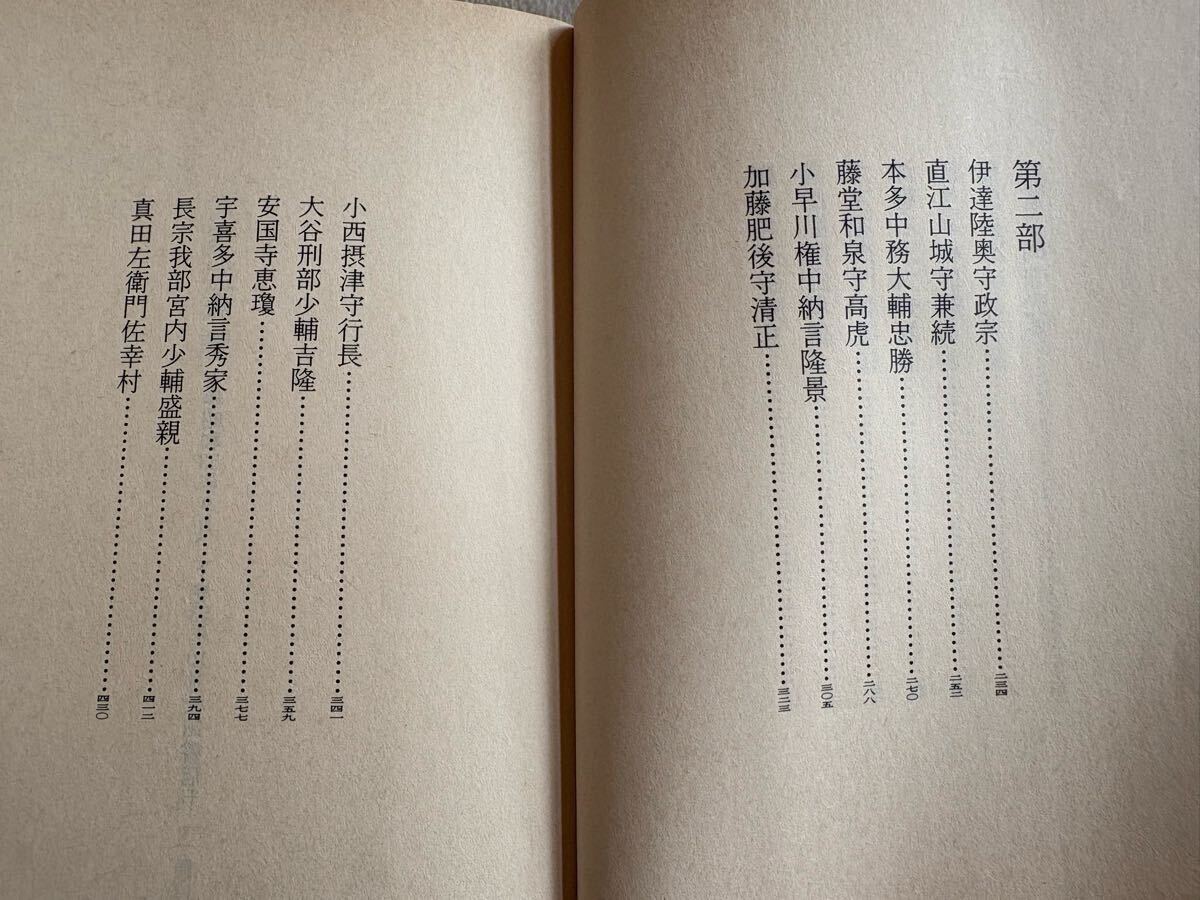 第二部
伊達陸奥守政宗……………………二三四
直江山城守兼続……………………二五二
本多中務大輔忠勝……………………二七〇
藤堂和泉守高虎……………………二八八
小早川権中納言隆景……………………三〇五
加藤肥後守清正……………………三二三
小西摂津守行長……………………三四一
大谷刑部少輔吉隆……………………三五九
安国寺恵瓊……………………三七七
宇喜多中納言秀家……………………三九四
長宗我部宮内少輔盛親……………………四一二
真田左衛門佐幸村……………………四三〇